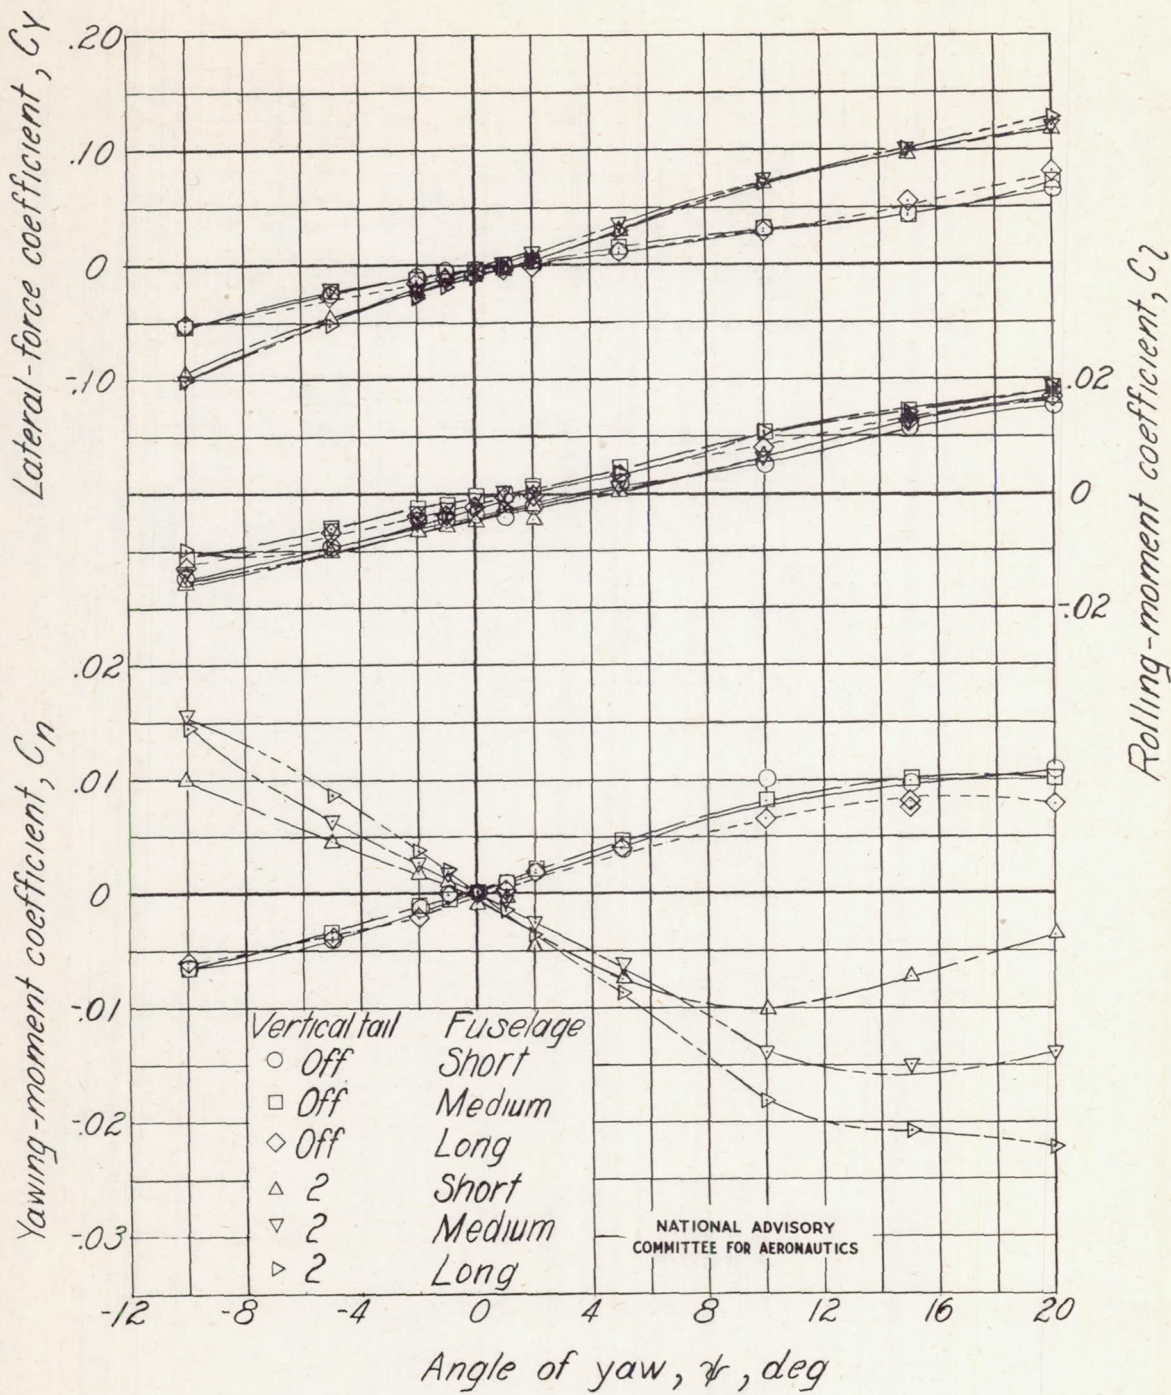 Lateral-force coefficient, Cy
.20
.10
0
-.10
Rolling-moment coefficient, Cl
.02
0
-.02
Yawing-moment coefficient, Cn
.02
.01
0
-.01
-.02
-.03
Vertical tail Fuselage
Off Short
Off Medium
Off Long
2 Short
2 Medium
2 Long
NATIONAL ADVISORY
COMMITTEE FOR AERONAUTICS
-12 -8 -4 0 4 8 12 16 20
Angle of yaw, ψ, deg